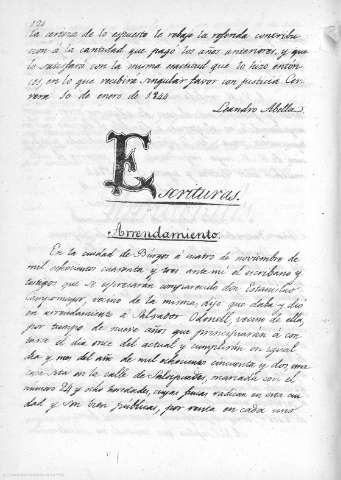 124
la certeza de lo espuesto le rebaje la referida contribu-
cion á la cantidad que pagó los años anteriores, y que
lo satisfará con la misma exactitud que lo hizo enton-
ces, en lo que recibirá singular favor con justicia. Cer-
vera 10 de enero de 1844.
Leandro Abella
Escrituras.
Arrendamiento.
En la ciudad de Búrgos á cuatro de noviembre de
mil ochocientos cuarenta y tres ante mí el escribano y
testigos que se espresarán compareció don Estanislao
vecino de la misma, dijo que daba y dió
en arrendamiento á Salvador Odonell, vecino de ella,
por tiempo de nueve años que principiarán á con-
tarse el dia once del actual y cumplirán en igual
dia y mes del año de mil ochocientos cincuenta y dos, una
casa sita en la calle de marcada con el
número 24 y ocho heredades, cuyas fincas radican en esta ciu-
dad y son bien públicas, por renta en cada uno